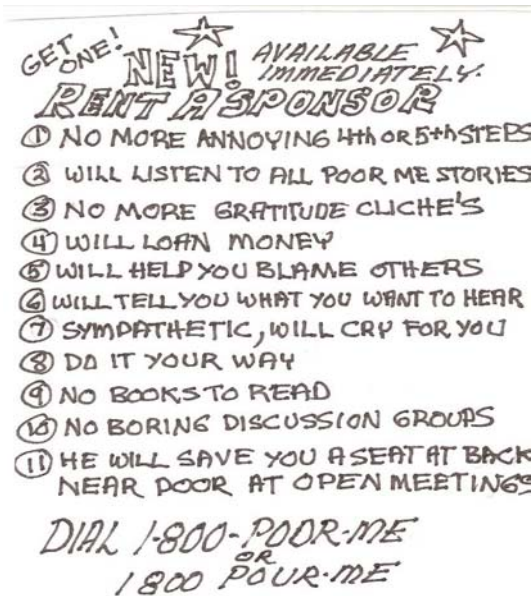 GET ONE!
NEW!
AVAILABLE IMMEDIATELY.
RENT A SPONSOR
① NO MORE ANNOYING 4th OR 5th STEPS
② WILL LISTEN TO ALL POOR ME STORIES
③ NO MORE GRATITUDE CLICHE'S
④ WILL LOAN MONEY
⑤ WILL HELP YOU BLAME OTHERS
⑥ WILL TELL YOU WHAT YOU WANT TO HEAR
⑦ SYMPATHETIC, WILL CRY FOR YOU
⑧ DO IT YOUR WAY
⑨ NO BOOKS TO READ
⑩ NO BORING DISCUSSION GROUPS
⑪ HE WILL SAVE YOU A SEAT AT BACK
NEAR DOOR AT OPEN MEETINGS
DIAL 1-800-POOR-ME
OR
1800 POUR-ME